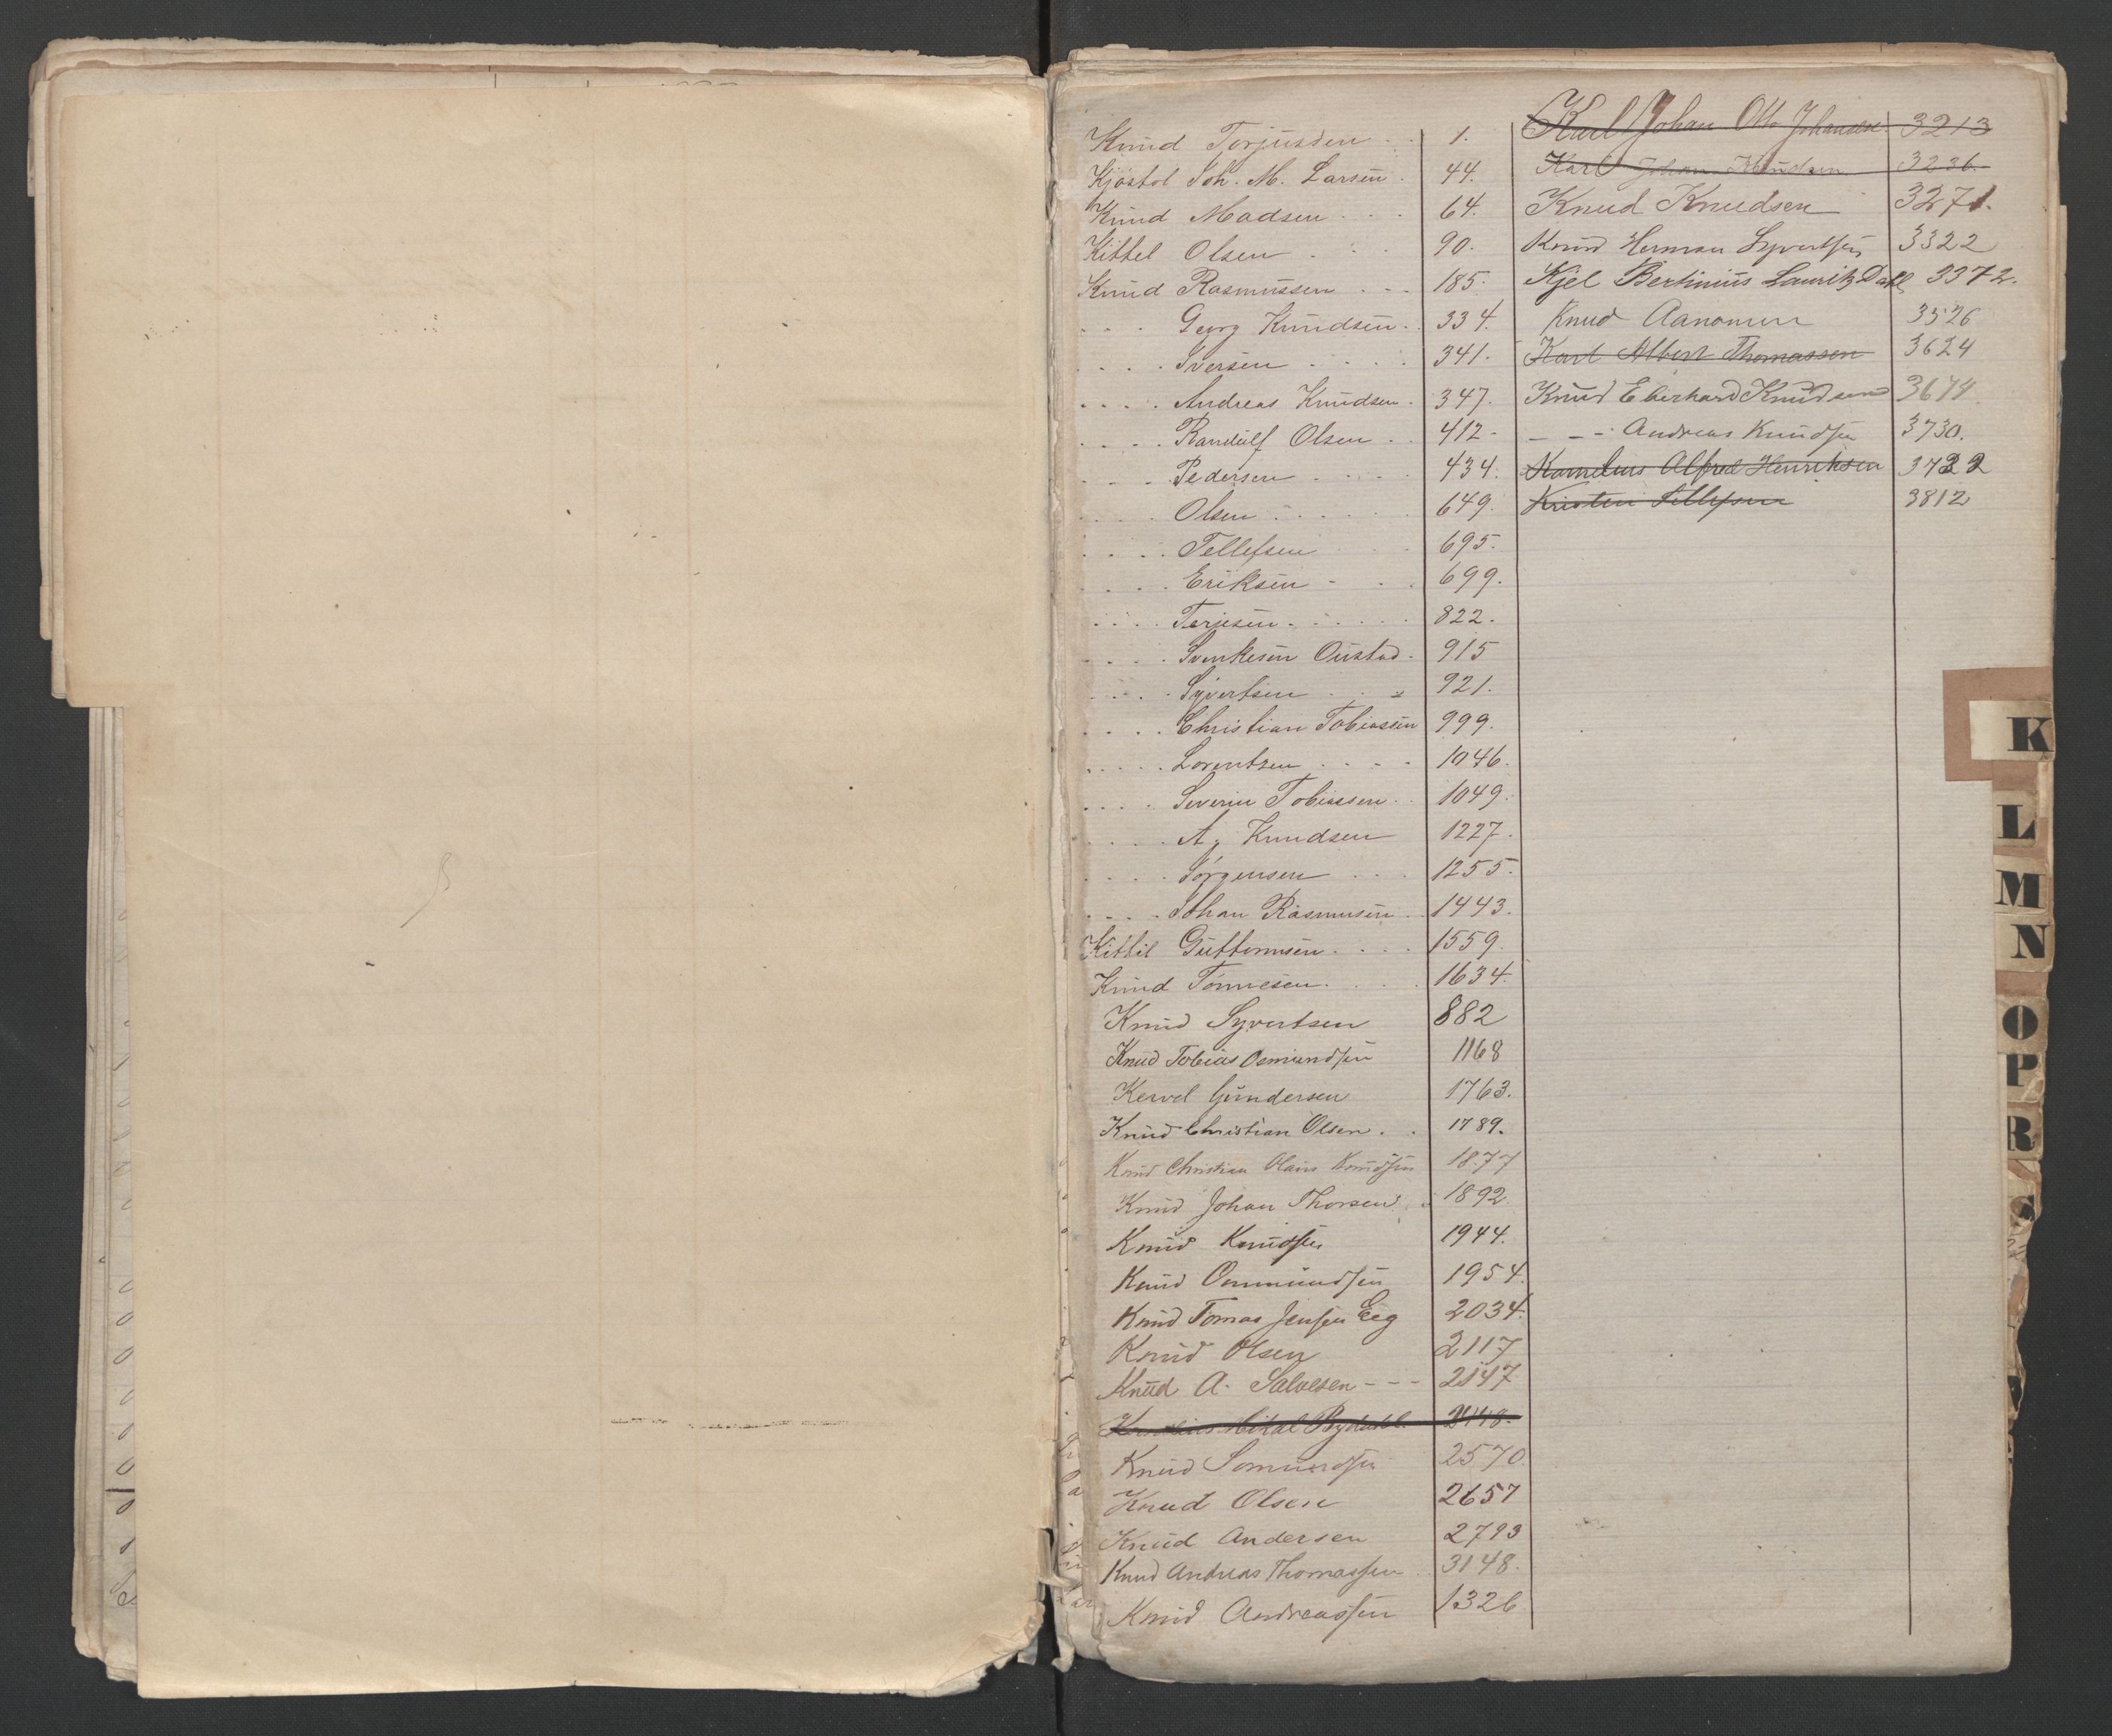 Knud Torjussen . . 1.
Kjöstol Joh. M. Larsen . 44.
Knud Madsen . . . 64.
Kittel Olsen . . . 90.
Knud Rasmussen . . . 185.
. . . Georg Knudsen . . 334.
. . . . Iversen . . . . 341.
. . . . Andreas Knudsen . 347.
. . . . Randulf Olsen . . 412-
. . . . Pedersen . . . . 434.
. . . . Olsen . . . . . . 649.
. . . . Tellefsen . . . 695.
. . . . Eriksen . . . 699.
. . . . Terjesen . . . . . . 822.
. . . . Svenkesen Oustad . 915
. . . . Syvertsen . . . 921.
. . . . Christian Tobiassen 999.
. . . . . Lorentsen . . . . 1046.
. . . . Severin Tobiassen . . 1049.
. . . . A. Knudsen 1227.
. . . . Jörgensen . . . 1255.
. . . . Johan Rasmusen . . 1443.
Kittil Guttormsen . . . . 1559.
Knud Tönnesen . . . . 1634.
Knud Syvertsen 882
Knud Tobias Osmundsen 1168
Kervel Gundersen 1763.
Knud Christian Olsen . . 1789.
Knud Christian Olaus Knudsen 1877
Knud Johan Thorsen . . 1892.
Knud Knudsen 1944.
Knud Ommundsen 1954.
Knud Tomas Jensen Eeg 2034.
Knud Olsen 2117
Knud A. Salvesen - - - 2147
Mikal 2448.
Knud 2570.
Knud Olsen 2657
Knud Andersen 2793
Knud Andreas Thomassen 3148.
Knud Andreassen 1326.
Karl Johan Otto Johansen 3213
Karl Johan Knudsen 3236.
Knud Knudsen 3271.
Knud Herman Syvertsen 3322
Kjel Bertinius Lauritz Dahl 3372.
Knud Aanonsen 3526
Karl Albert Thomassen 3624
Knud Eberhard Knudsen 3674.
- - - Andreas Knudsen 3730.
Kornelius Alfred Henriksen 3732
Kristen Tellefsen 3812
K
L
M
N
O
P
R
S